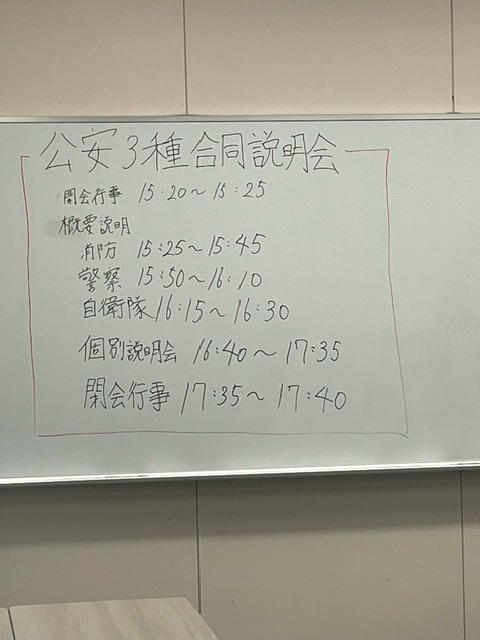 公安3種合同説明会
開会行事 15:20～15:25
概要説明
消防 15:25～15:45
警察 15:50～16:10
自衛隊 16:15～16:30
個別説明会 16:40～17:35
閉会行事 17:35～17:40